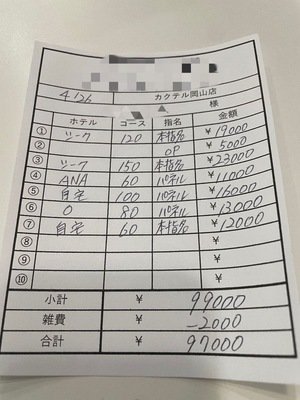 4/26 カクテル岡山店
様
ホテル コース 指名 金額
① シーク 120 本指名 ¥19000
② OP ¥5000
③ シーク 150 本指名 ¥23000
④ ANA 60 パネル ¥11000
⑤ 自宅 100 パネル ¥16000
⑥ O 80 パネル ¥13000
⑦ 自宅 60 本指名 ¥12000
⑧ ¥
⑨ ¥
⑩ ¥
小計 ¥ 99000
雑費 ¥ -2000
合計 ¥ 97000